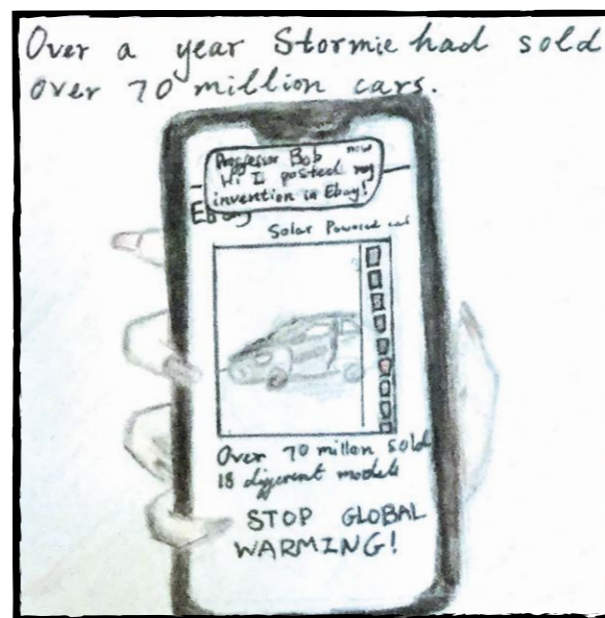 Over a year Stormie had sold
over 70 million cars.
Proffesor Bob now
Hi I posted my
invention in Ebay!
Ebay
Solar Powered car
Over 70 millon sold
18 different models
STOP GLOBAL
WARMING!